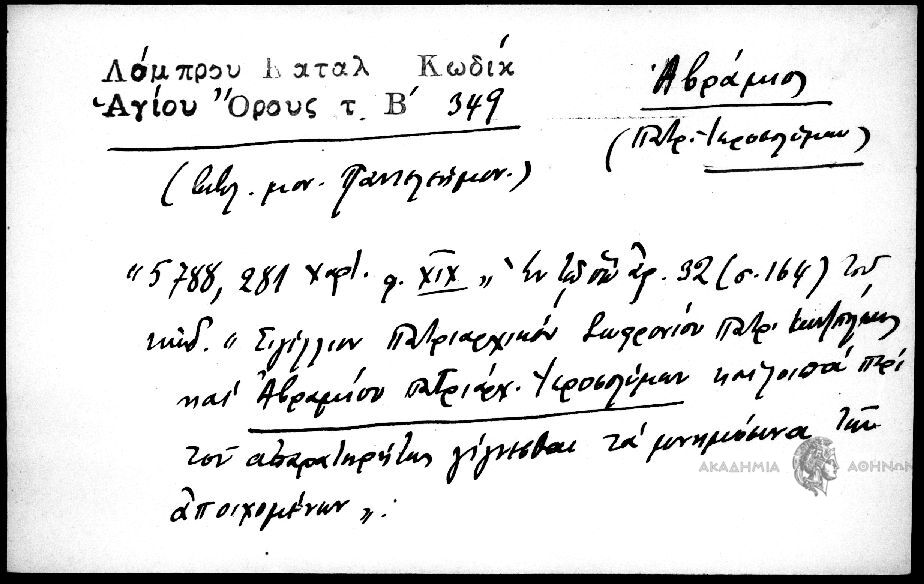 Λάμπρου Καταλ Κωδίκ
Ἁγίου Ὄρους τ. Β΄ 349
Ἀβράμιος
(Πατρ. Ἱεροσολύμων)
(Βιβλ. μον. Παντελεήμον.)
"5788, 281 χαρτ. φ. XIX " Ἐν τῷ ὑπ ἀρ. 32 (σ. 164) τοῦ
κώδ. " Σιγίλλιον Πατριαρχικόν Σωφρονίου Πατρ. Κων/πόλεως
καί Ἀβραμίου Πατριάρχ. Ἱεροσολύμων καί λοιπά περί
τοῦ ἀπαρατηρήτως γίγνεσθαι τά μνημόσυνα τῶν
ἀποιχομένων ".
ΑΚΑΔΗΜΙΑ ΑΘΗΝΩΝ